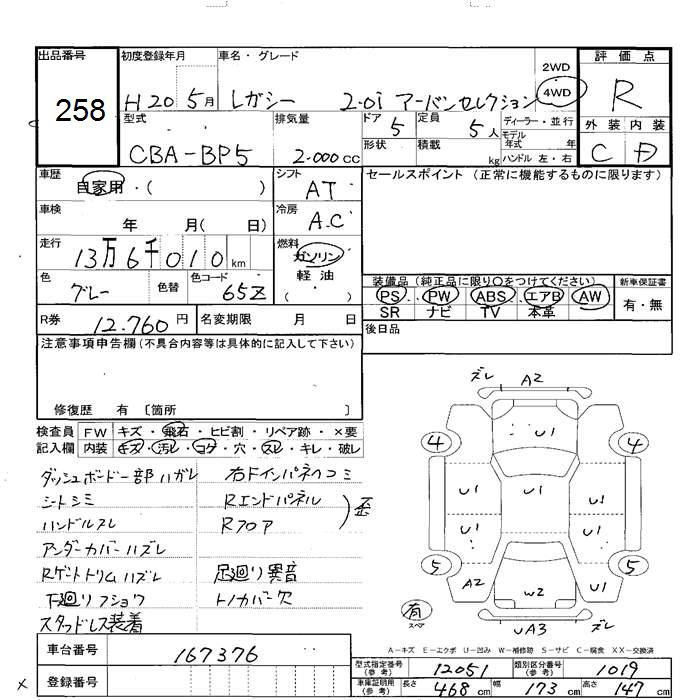 出品番号 初度登録年月 車名・グレード 2WD 4WD 評価点
258 H20 5月 レガシー 2.0i アーバンセレクション R
型式 排気量 ドア 5 定員 5人 ディーラー・並行 外装 内装
CBA-BP5 2.000cc 形状 積載 kg モデル年式 年 ハンドル 左・右 C D
車歴 自家用・( ) シフト AT セールスポイント(正常に機能するものに限ります)
車検 年 月( 日) 冷房 A.C
走行 13万6千010km 燃料 ガソリン 軽油 ( )
色 グレー 色替 色コード 65Z 装備品(純正品に限り○をつけてください) 新車保証書
PS PW ABS エアB AW 有・無
SR ナビ TV 本革
R券 12.760円 名変期限 月 日 後日品
注意事項申告欄(不具合内容等は具体的に記入して下さい)
修復歴 有 〔箇所 〕
検査員 FW キズ・飛石・ヒビ割・リペア跡・×要
記入欄 内装 キズ・汚レ・コゲ・穴・スレ・キレ・破レ
ダッシュボード一部ハガレ 右Fインパネヘコミ
シートシミ Rエンドパネル
ハンドルスレ Rフロア 歪
アンダーカバーハズレ
Rゲートトリムハズレ 足廻り異音
下廻りフショウ トノカバー欠
スタッドレス装着
ズレ A2
4 U1 4
U1 U1 U1
U1 U1
5 5
A2 W2 U1
有 スペア UA3 ズレ
A-キズ E-エクボ U-凹み W-補修跡 S-サビ C-腐食 XX-交換済
車台番号 167376 型式指定番号(参考) 12051 類別区分番号(参考) 1019
登録番号 車庫証明用(参考) 長さ 468cm 幅 173cm 高さ 147cm